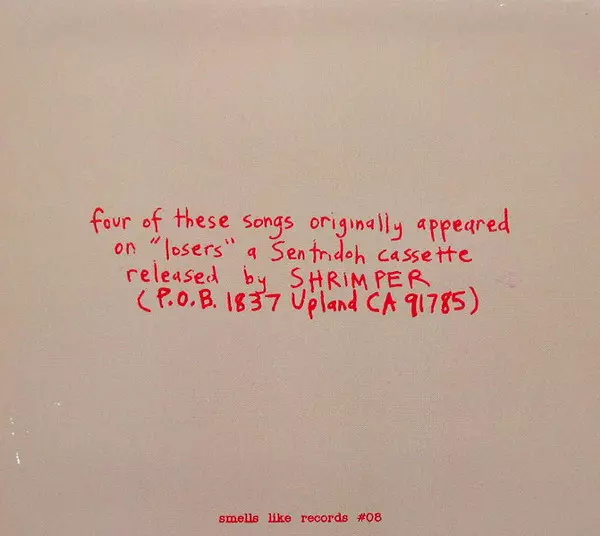 four of these songs originally appeared
on "losers" a Sentridoh cassette
released by SHRIMPER
(P.O.B. 1837 Upland CA 91785)
smells like records #08